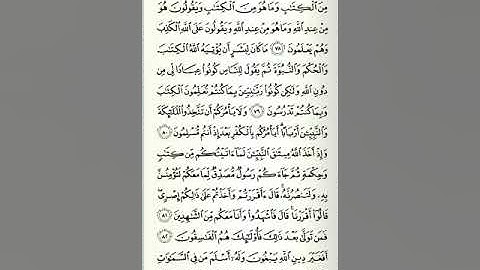 مِنَ ٱلۡكِتَٰبِ وَمَا هُوَ مِنَ ٱلۡكِتَٰبِ وَيَقُولُونَ هُوَ
مِنۡ عِندِ ٱللَّهِ وَمَا هُوَ مِنۡ عِندِ ٱللَّهِ وَيَقُولُونَ عَلَى ٱللَّهِ ٱلۡكَذِبَ
وَهُمۡ يَعۡلَمُونَ ٧٨ مَا كَانَ لِبَشَرٍ أَن يُؤۡتِيَهُ ٱللَّهُ ٱلۡكِتَٰبَ
وَٱلۡحُكۡمَ وَٱلنُّبُوَّةَ ثُمَّ يَقُولَ لِلنَّاسِ كُونُواْ عِبَادٗا لِّي مِن
دُونِ ٱللَّهِ وَلَٰكِن كُونُواْ رَبَّٰنِيِّـۧنَ بِمَا كُنتُمۡ تُعَلِّمُونَ ٱلۡكِتَٰبَ
وَبِمَا كُنتُمۡ تَدۡرُسُونَ ٧٩ وَلَا يَأۡمُرَكُمۡ أَن تَتَّخِذُواْ ٱلۡمَلَٰٓئِكَةَ
وَٱلنَّبِيِّـۧنَ أَرۡبَابًاۗ أَيَأۡمُرُكُم بِٱلۡكُفۡرِ بَعۡدَ إِذۡ أَنتُم مُّسۡلِمُونَ ٨٠
وَإِذۡ أَخَذَ ٱللَّهُ مِيثَٰقَ ٱلنَّبِيِّـۧنَ لَمَآ ءَاتَيۡتُكُم مِّن كِتَٰبٖ
وَحِكۡمَةٖ ثُمَّ جَآءَكُمۡ رَسُولٞ مُّصَدِّقٞ لِّمَا مَعَكُمۡ لَتُؤۡمِنُنَّ
بِهِۦ وَلَتَنصُرُنَّهُۥۚ قَالَ ءَأَقۡرَرۡتُمۡ وَأَخَذۡتُمۡ عَلَىٰ ذَٰلِكُمۡ إِصۡرِيۖ
قَالُوٓاْ أَقۡرَرۡنَاۚ قَالَ فَٱشۡهَدُواْ وَأَنَا۠ مَعَكُم مِّنَ ٱلشَّٰهِدِينَ ٨١
فَمَن تَوَلَّىٰ بَعۡدَ ذَٰلِكَ فَأُوْلَٰٓئِكَ هُمُ ٱلۡفَٰسِقُونَ ٨٢
أَفَغَيۡرَ دِينِ ٱللَّهِ يَبۡغُونَ وَلَهُۥٓ أَسۡلَمَ مَن فِي ٱلسَّمَٰوَٰتِ